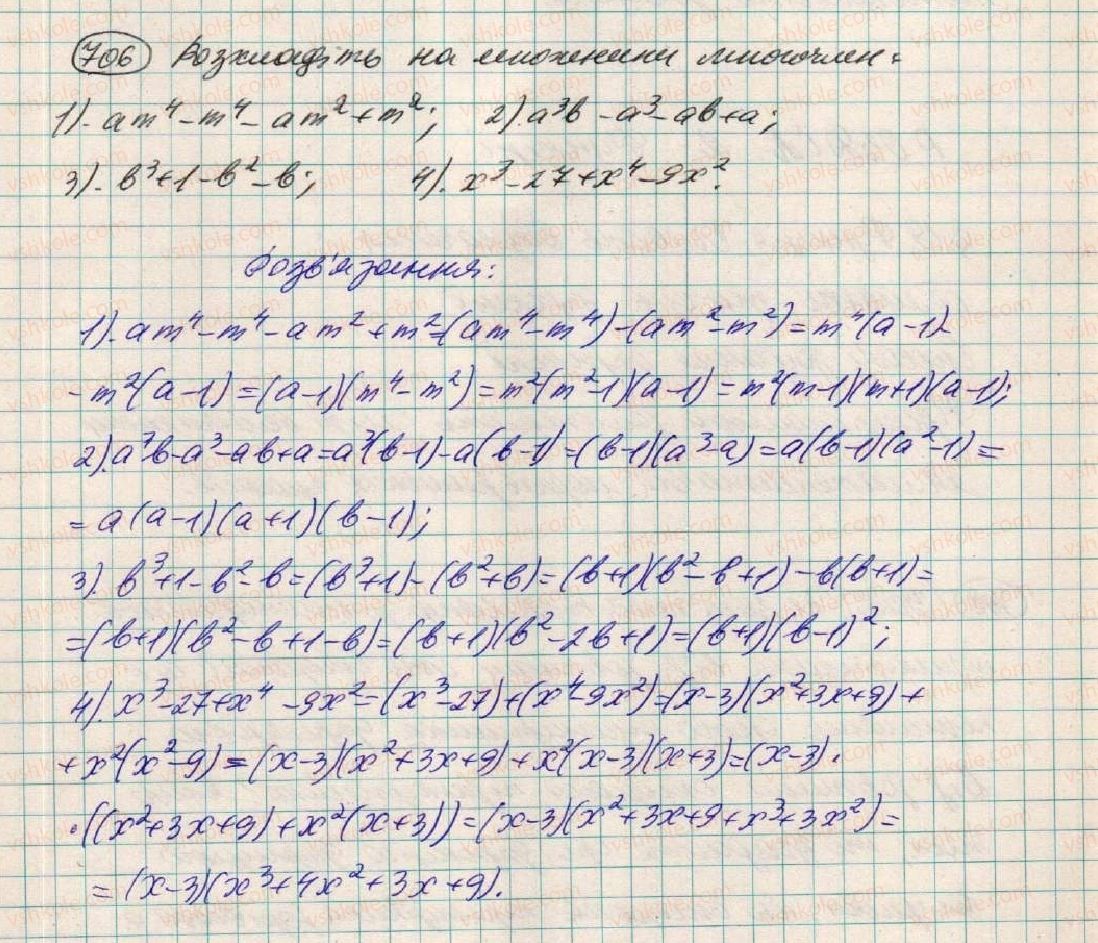 706 Розкладіть на множники многочлен:
1). am⁴-m⁴-am²+m²; 2). a³b-a³-ab+a;
3). b³+1-b²-b; 4). x³-27+x⁴-9x².
Розв'язання:
1). am⁴-m⁴-am²+m²=(am⁴-m⁴)-(am²-m²)=m⁴(a-1)-
-m²(a-1)=(a-1)(m⁴-m²)=m²(m²-1)(a-1)=m²(m-1)(m+1)(a-1);
2). a³b-a³-ab+a=a³(b-1)-a(b-1)=(b-1)(a³-a)=a(b-1)(a²-1)=
=a(a-1)(a+1)(b-1);
3). b³+1-b²-b=(b³+1)-(b²+b)=(b+1)(b²-b+1)-b(b+1)=
=(b+1)(b²-b+1-b)=(b+1)(b²-2b+1)=(b+1)(b-1)²;
4). x³-27+x⁴-9x²=(x³-27)+(x⁴-9x²)=(x-3)(x²+3x+9)+
+x²(x²-9)=(x-3)(x²+3x+9)+x²(x-3)(x+3)=(x-3)·
·((x²+3x+9)+x²(x+3))=(x-3)(x²+3x+9+x³+3x²)=
=(x-3)(x³+4x²+3x+9).